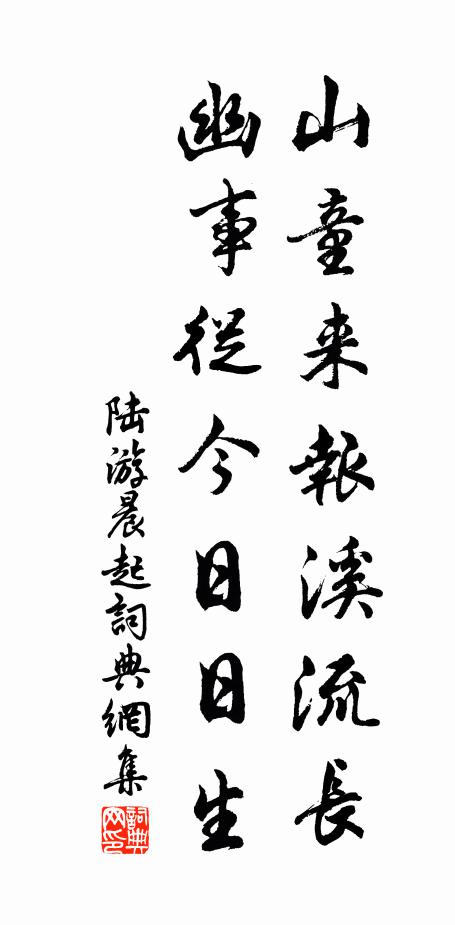 山童来報溪流長
幽事從今日日生
陆游晨起詞典網集
詞典网印